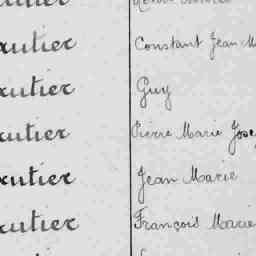 autier Constant Jean M
autier Guy
autier Pierre Marie Jose
autier Jean Marie
autier François Marie